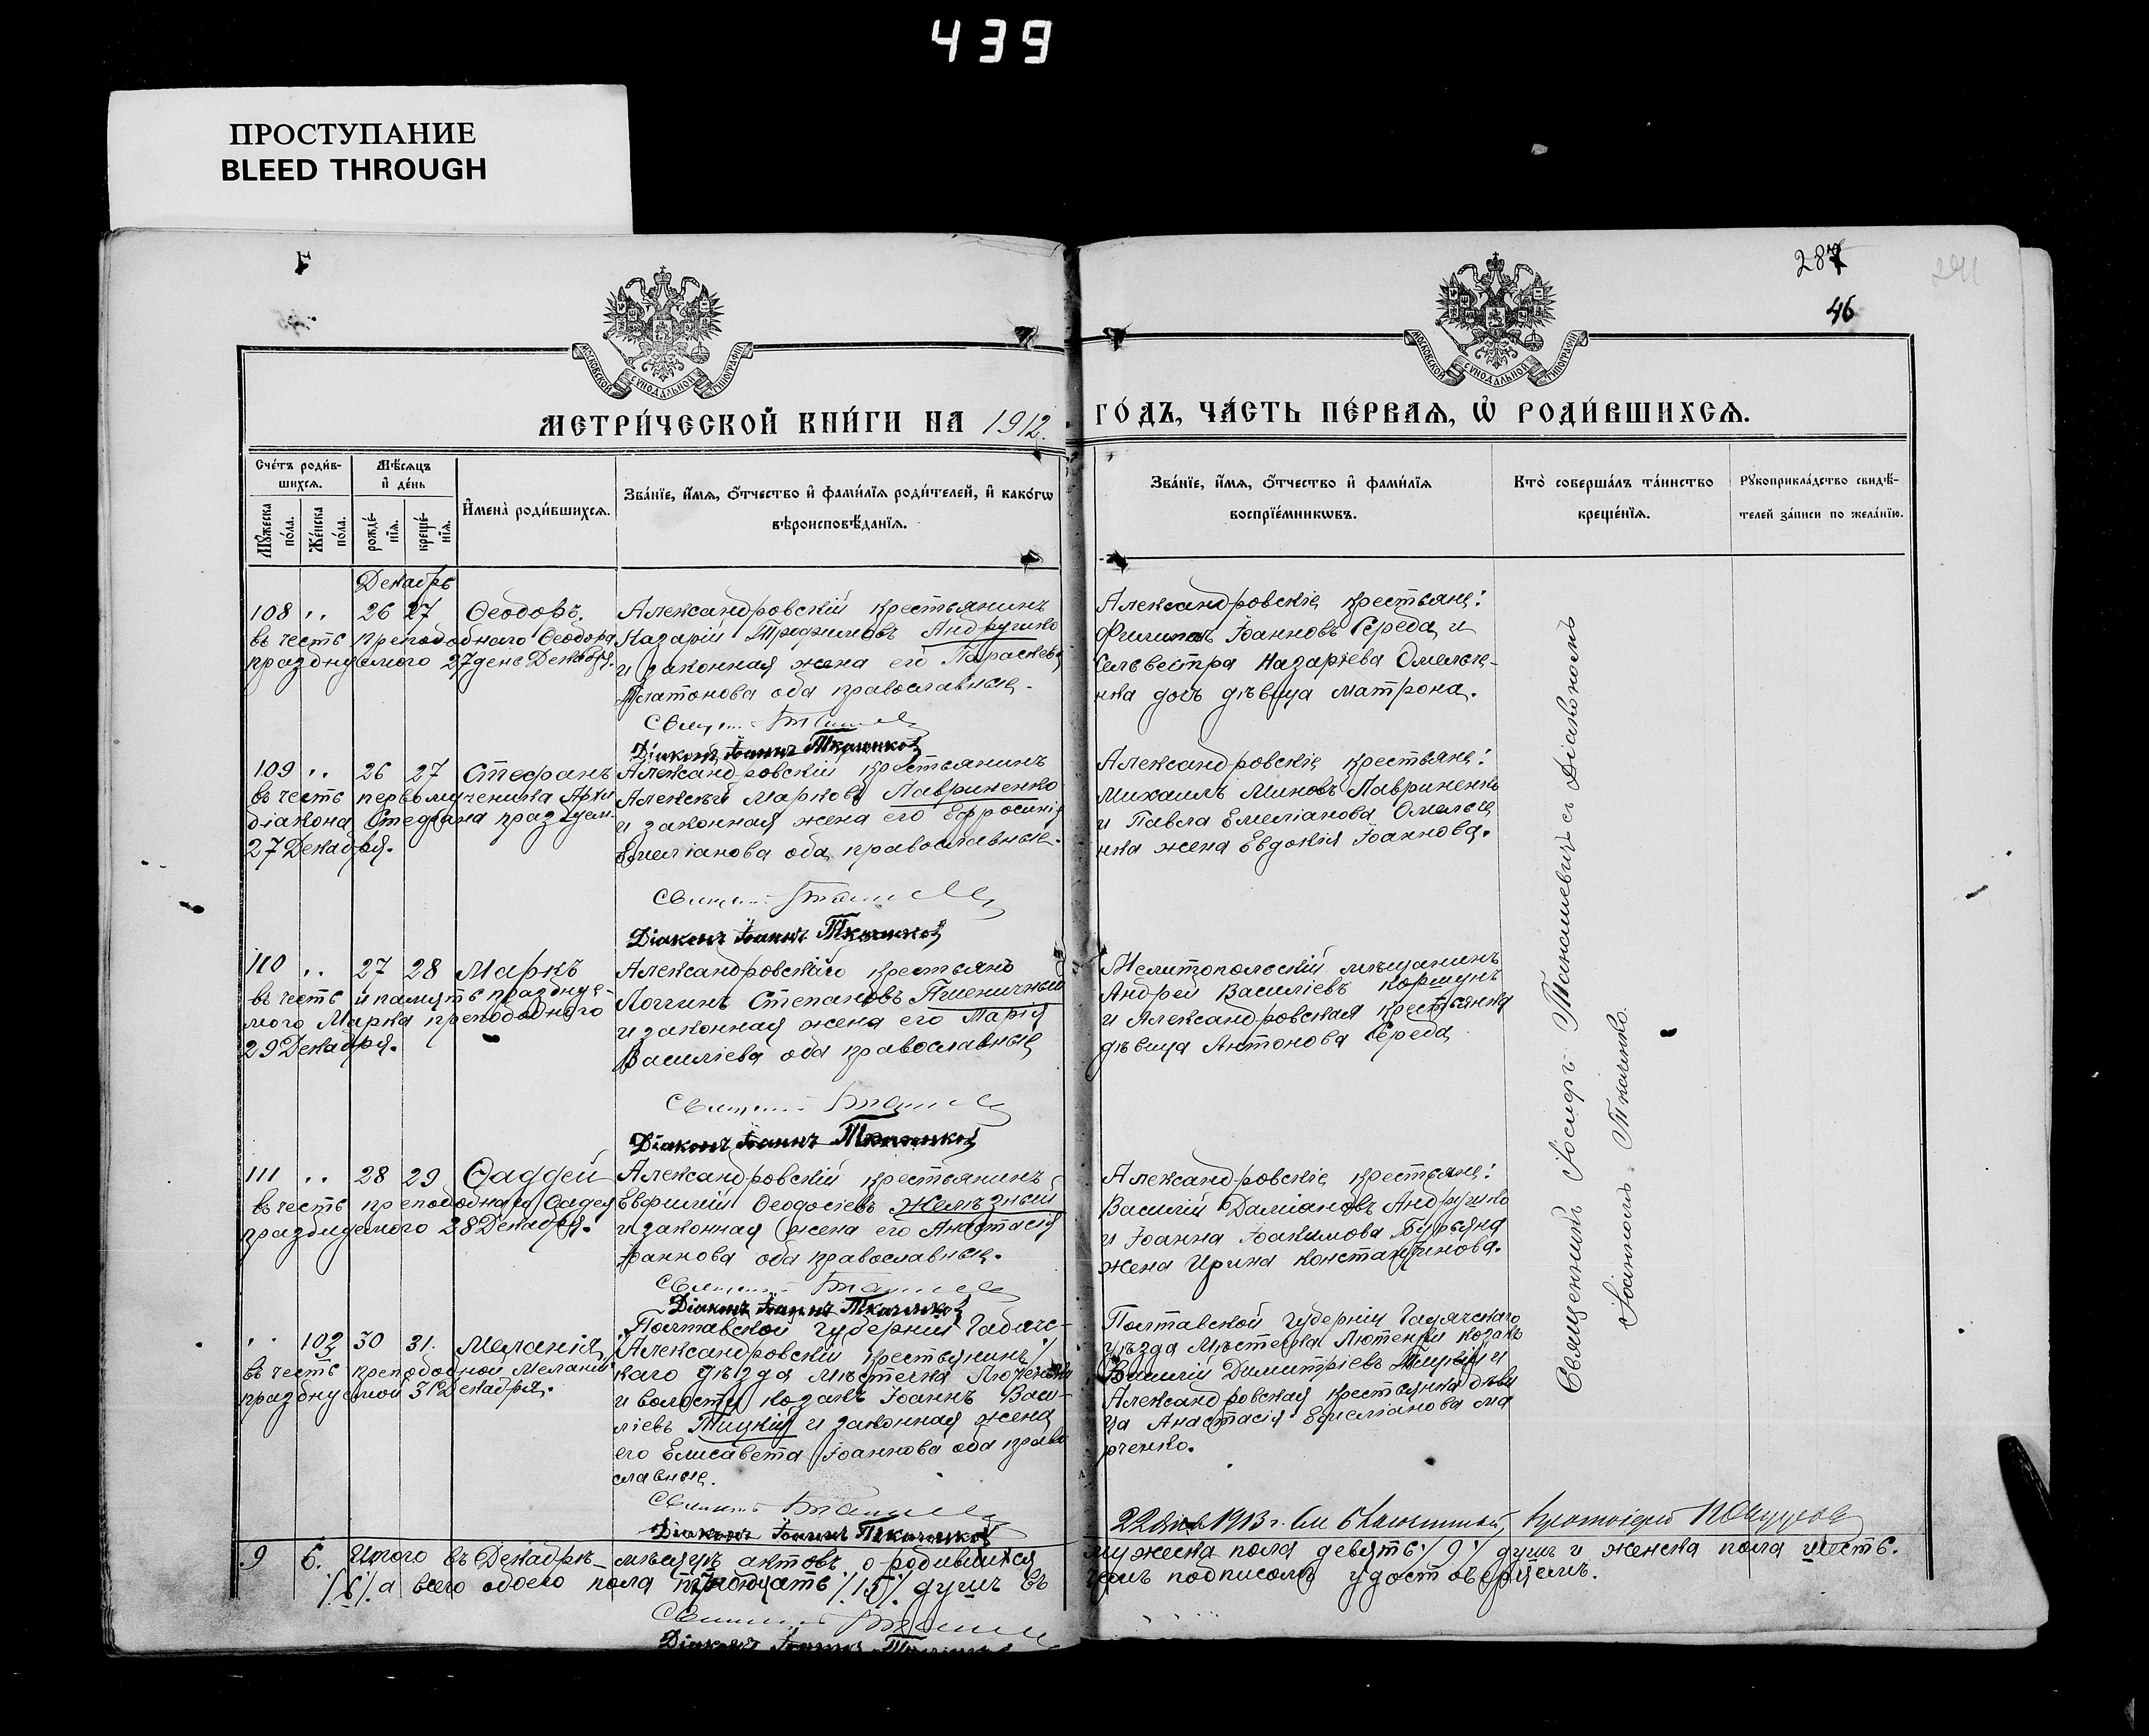 439
ПРОСТУПАНИЕ
BLEED THROUGH
287
46
МОСКОВСКОЙ СѴНОДАЛЬНОЙ ТИПОГРАФІИ
МОСКОВСКОЙ СѴНОДАЛЬНОЙ ТИПОГРАФІИ
МЕТРИ́ЧЕСКОЙ КНИ́ГИ НА 1912. ГО́ДЪ, ЧА́СТЬ ПЕ́РВАѦ, Ѡ҆ РОДИ́ВШИХСѦ.
Сче́тъ роди́в-
шихсѧ.
Мꙋ́жеска по́ла.
Же́нска по́ла.
Мѣ́сѧцъ
и҆ де́нь
рожде́-нїѧ.
креще́-нїѧ.
И҆мена̀ роди́вшихсѧ.
Зва́нїе, и҆́мѧ, ѻ҆́тчество и҆ фами́лїѧ роди́телей, и҆ како́гѡ
вѣроисповѣ́данїѧ.
Зва́нїе, и҆́мѧ, ѻ҆́тчество и҆ фами́лїѧ
воспрїе́мникѡвъ.
Кто̀ соверша́лъ та́инство
креще́нїѧ.
Рꙋкоприкла́дство свидѣ́-
телей за́писи по жела́нїю.
Декабрь
108 " 26 27 Ѳеодоръ.
въ честь преподобнаго Ѳеодора
празднуемого 27 день Декабря.
Александровскій крестьянинъ
Назарій Трофимовъ Андрушко
и законная жена его Параскева
Платонова оба православные.
Діаконъ Іоаннъ Ткаченко
Александровскіе крестьяне:
Филиппъ Іоанновъ Середа и
Сильвестра Назарьева Омельче-
нка дочь дѣвица Матрона.
109 " 26 27 Стефанъ
въ честь первомученика Архи
діакона Стефана празднуем.
27 Декабря.
Александровскій крестьянинъ
Алексѣй Марковъ Лавриненко
и законная жена его Ефросинія
Емеліанова оба православные.
Діаконъ Іоаннъ Ткаченко
Александровскіе крестьяне:
Михаилъ Миновъ Лавриненко
и Павла Емеліанова Омельче
нка жена Евдокія Іоаннова.
110 " 27 28 Маркъ
въ честь и память празднуе-
мого Марка преподобного
29 Декабря.
Логгинъ Степановъ Пшеничный
и законная жена его Марія
Василіева оба православные
Діаконъ Іоаннъ Ткаченко
Мелитопольскій мѣщанинъ
Андрей Василіевъ Коршунъ
и Александровская крестьянка
дѣвица Антонова Середа
111 " 28 29 Ѳаддей
въ честь преподобнаго Ѳадея
празднуемого 28 Декабря.
Александровскій крестьянинъ
Евфимій Ѳеодосіевъ Желѣзный
и законная жена его Анастасія
Іоаннова оба православные.
Діаконъ Іоаннъ Ткаченко
Александровскіе крестьяне:
Василій Даміановъ Андрушко
и Іоанна Іоакимова Бурьяна
жена Ирина Константинова.
" 102 30 31. Меланія
въ честь преподобной Меланіи
празднуемой 31 Декабря.
Полтавской губерніи Гадячс-
Александровскій крестьянинъ
каго уѣзда мѣстечка Лютеньки
и волости козакъ Іоаннъ Васи-
ліевъ Тицкій и законная жена
его Елисавета Іоаннова оба право
славные.
Діаконъ Іоаннъ Ткаченко
Полтавской губерніи Гадячскаго
уѣзда мѣстечка Лютеньки козакъ
Василій Димитріевъ Тицкій и
Александровская крестьянка дѣви
ца Анастасія Емеліанова Ма
рченко.
Священникъ Іосифъ Танашевичъ съ Діакономъ
Іоанномъ Ткаченко.
9 6. Итого въ Декабрѣ мѣсяцѣ актовъ о родившихся мужеска пола девять /9/ душъ и женска пола шесть.
/6/ а всего обоего пола пятнадцать /15/ душъ въ чемъ подписомъ удостовѣряемъ.